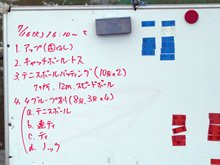 7/16(火) 16:10〜
1. アップ(各自)
2. キャッチボール・トス
3. テニスボールバッティング(10分×2)
12m. スピードボール
4. 4グループ(8分, 3分×4)
a. テニスボール
b. 連ティ
c. ティ
d. ノック